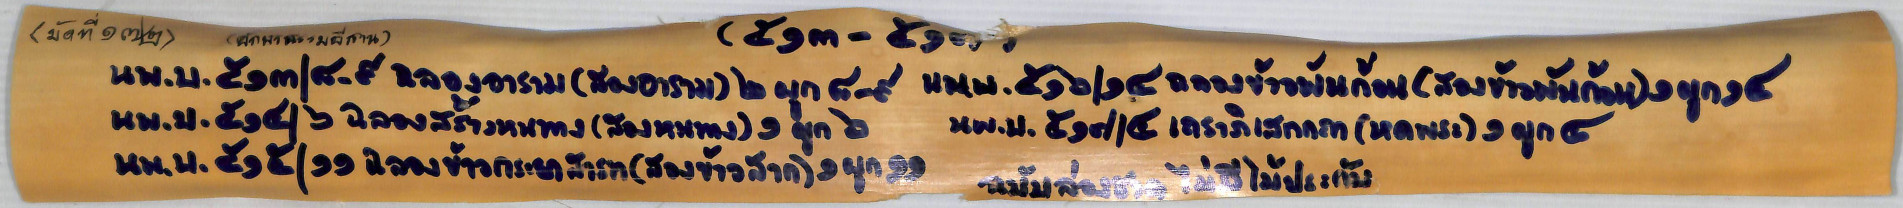 (มัดที่ ๑๗๒) (ศาลาธรรมอีสาน) (๕๑๓ - ๕๑๗)
นพ.บ. ๕๑๓/๘-๙ ฉลองอาราม (สองอาราม) ๒ ผูก ๘-๙
นพ.บ. ๕๑๔/๖ ฉลองสร้างหนทาง (สองหนทาง) ๑ ผูก ๖
นพ.บ. ๕๑๕/๑๑ ฉลองข้าวกระยาสารท (สองข้าวสาก) ๑ ผูก ๑๑
นพ.บ. ๕๑๖/๑๔ ฉลองข้าวพันก้อน (สองข้าวพันก้อน) ๑ ผูก ๑๔
นพ.บ. ๕๑๗/๔ เถราภิเสกกถา (หดพระ) ๑ ผูก ๔
ฉบับล่องชาด ไม่มีไม้ประกับ